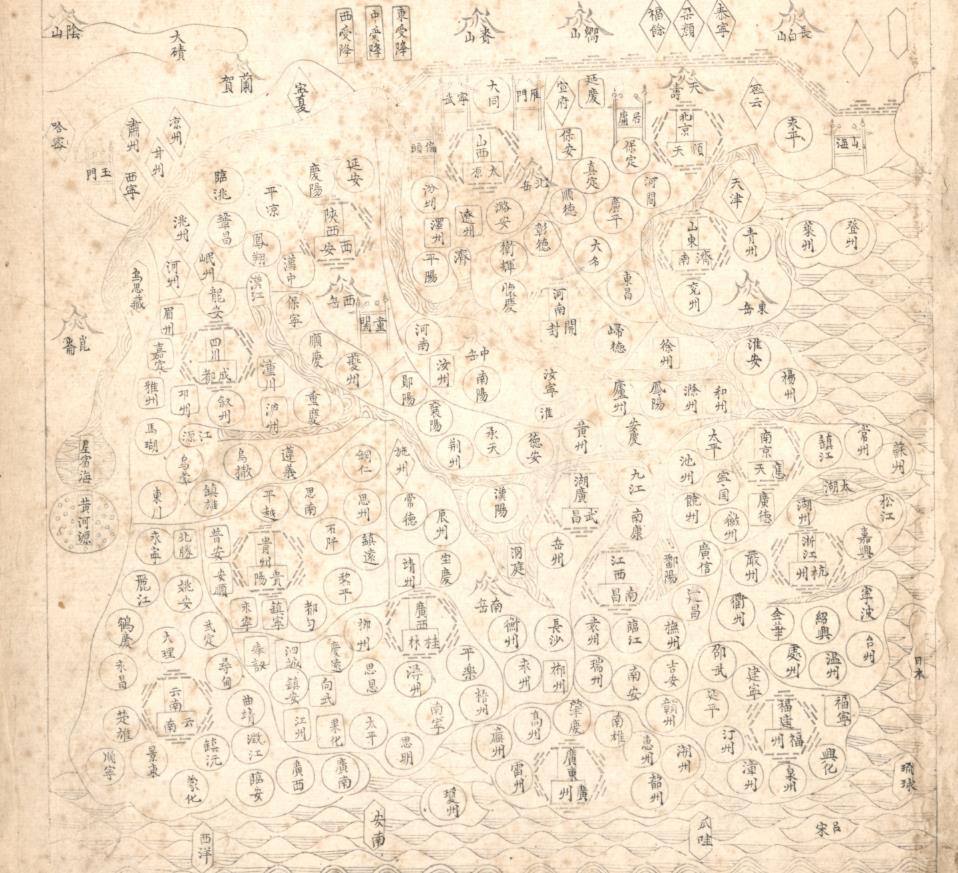 陰山
大磧
賀蘭
寧夏
西受降
中受降
東受降
山
山
福餘
朶顏
泰寧
長白山
哈密
玉門
肅州
甘州
涼州
西寧
寧武
大同
雁門
宣府
延慶
居庸
天壽
北京
順天
密云
永平
山海
偏頭
山西
太原
北岳
保安
保定
真定
順德
廣平
河間
天津
臨洮
平凉
慶陽
延安
陝西
西安
汾州
澤州
遼州
潞安
彰德
平陽
懷慶
大名
東昌
山東
濟南
青州
萊州
登州
兗州
東岳
洮州
鞏昌
鳳翔
漢中
河州
岷州
漢江
西岳
潼關
烏思藏
龍安
保寧
眉州
崑崙
嘉定
四川
成都
潼川
順慶
夔州
河南
河南
開封
歸德
徐州
淮安
揚州
雅州
邛州
叙州
重慶
汝州
中岳
南陽
汝寧
淮
廬州
鳳陽
滁州
和州
鄖陽
襄陽
荆州
承天
德安
黄州
安慶
馬湖
江源
星宿海
黄河源
烏蒙
烏撒
遵義
銅仁
施州
太平
南京
應天
鎮江
常州
蘇州
東川
鎮雄
平越
思南
思州
常德
辰州
漢陽
湖廣
武昌
九江
南康
池州
寧国
廣德
太湖
松江
饒州
徽州
湖州
嘉興
永寧
北勝
普安
安順
貴州
貴陽
石阡
鎮遠
黎平
靖州
宝慶
洞庭
岳州
江西
南昌
鄱陽
廣信
嚴州
浙江
杭州
姚安
永寧
鎮寧
都匀
廣西
桂林
南岳
衡州
長沙
袁州
臨江
撫州
建昌
衢州
金華
紹興
寧波
鶴慶
大理
武定
台州
永昌
泗城
慶遠
柳州
思恩
潯州
平樂
永州
郴州
瑞州
南安
吉安
邵武
建寧
處州
温州
日本
楚雄
云南
云南
曲靖
鎮安
向武
梧州
贛州
延平
福建
福州
福寧
順寧
景東
鎮沅
澂江
江州
果化
太平
南寧
思明
廉州
高州
肇慶
南雄
惠州
潮州
汀州
漳州
泉州
興化
琉球
蒙化
臨安
廣西
廣南
瓊州
雷州
廣東
廣州
韶州
西洋
安南
瓜哇
吕宋